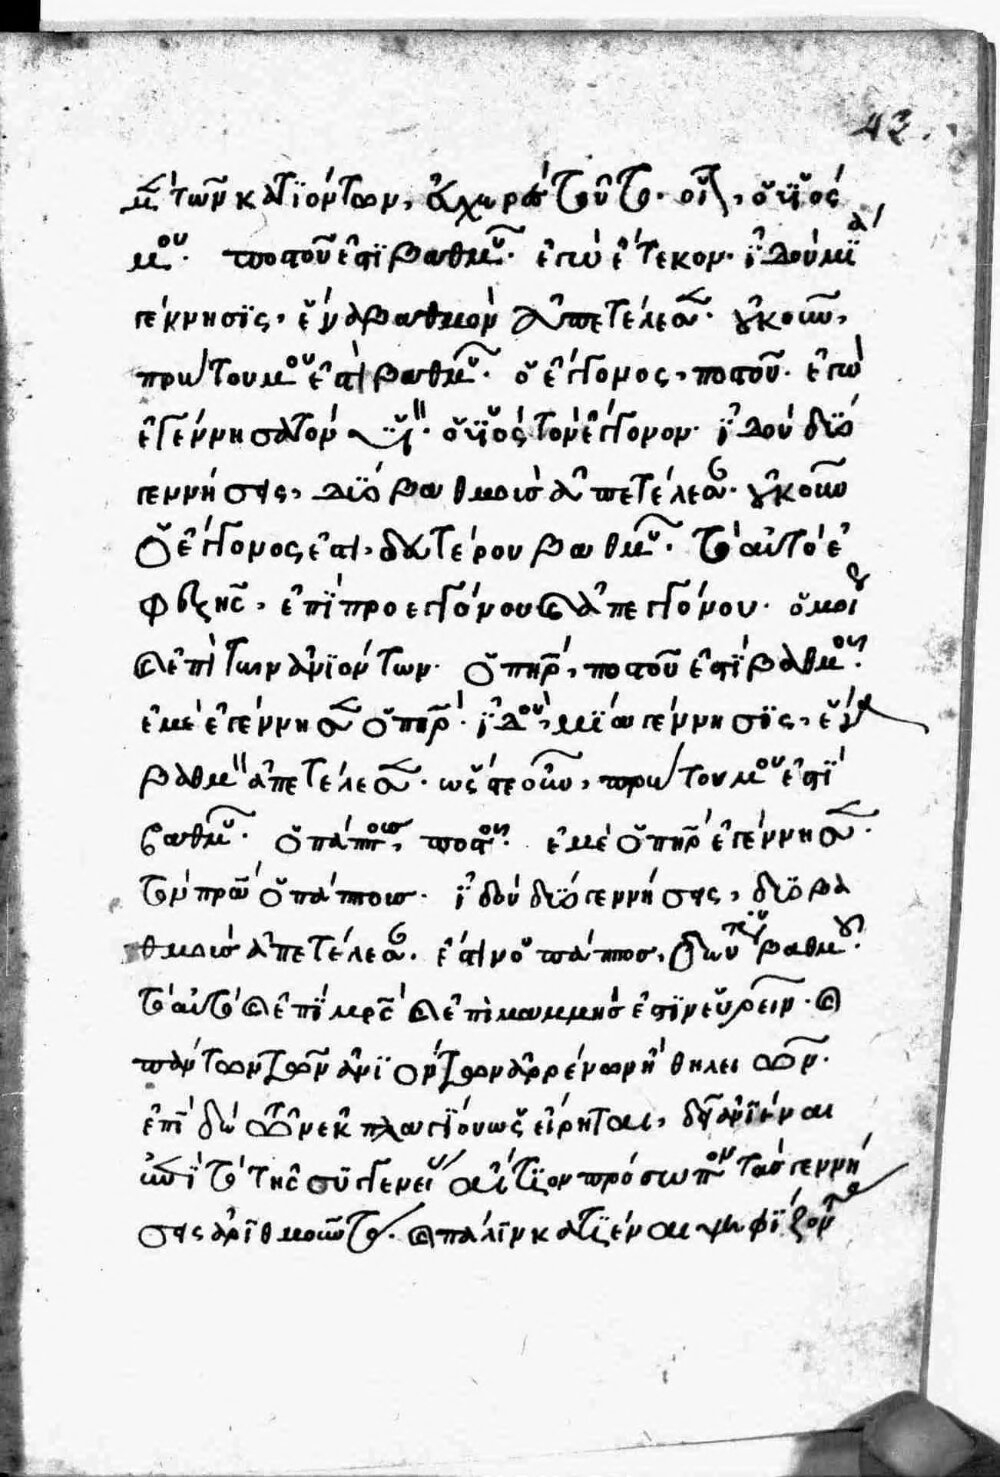 43.
μὲν τῶν κατϊόντων, εὐχερὲς τοῦτο. οἷον, ὁ ϋἱός
μου. ποστοῦ ἐστὶ βαθμοῦ. ἐγὼ ἔτεκον. ἰδοὺ μία
γέννησϊς, ἕνα βαθμὸν ἀπετέλεσεν. οὐκοῦν,
πρώτου μου ἐστὶ βαθμοῦ. ὁ ἔγγονος, ποστοῦ. ἐγὼ
ἐγέννησα τὸν ϋἱόν. ὁ ϋἱός τὸν ἔγγονον. ἰδοὺ δύο
γεννήσεις, δύο βαθμοὺς ἀπετέλεσαν. οὐκοῦν
ὁ ἔγγονος ἐστὶ, δευτέρου βαθμοῦ. τὸ αὐτὸ ἐ
φεξῆς, ἐπὶ προεγγόνου καὶ ἀπεγγόνου. ὁμοίως
καὶ ἐπὶ τῶν ἀνϊόντων. ὁ πατὴρ, ποστοῦ ἐστὶ βαθμοῦ.
ἐμὲ ἐγέννησεν ὁ πατήρ. ἰδοὺ, μία γέννησϊς, ἕνα
βαθμὸν ἀπετέλεσεν. ὥστε οὖν, πρώτου μου ἐστὶ
βαθμοῦ. ὁ πάππος, ποστοῦ. ἐμὲ ὁ πατὴρ ἐγέννησεν.
τὸν πατέρα ὁ πάππος. ἰδοὺ δύο γεννήσεις, δύο βα
θμοὺς ἀπετέλεσαν. ἔστιν ὁ πάππος, δευτέρου βαθμοῦ.
τὸ αὐτὸ καὶ ἐπὶ μητρὸς καὶ ἐπὶ μάμμης ἐστὶν εὑρεῖν. καὶ
πάντων τῶν ἀνϊόντων ἀρρένων ἢ θηλειῶν.
ἐπὶ δὲ τῶν ἐκ πλαγίου ὡς εἴρηται, δεῖ ἀνϊέναι
ἐπὶ τὸ τῆς συγγενείας αἴτϊον πρόσωπον τὰς γεννή
σεις ἀριθμοῦντα. καὶ πάλϊν κατϊέναι ψηφίζοντα